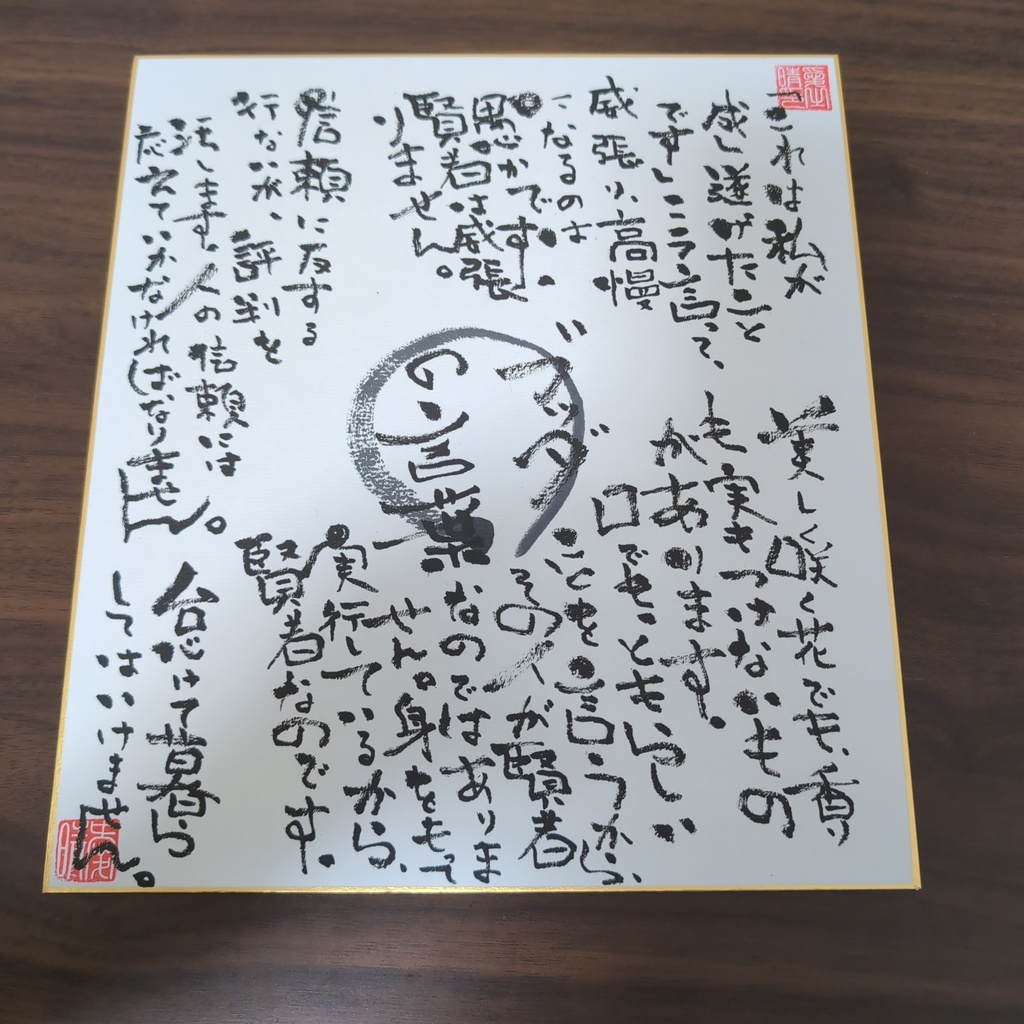 「これは私が
成し遂げたこと
です」こう言って、
威張り、高慢
になるのは
愚かです。
賢者は威張
りません。
信頼に反する
行ないが、評判を
汚します。人の信頼には
応えていかなければなりません。
ブッダ
の言葉
美しく咲く花でも、香り
も実もつけないもの
があります。
口でもっともらしい
ことを言うから、
その人が賢者
なのではありま
せん。身をもって
実行しているから、
賢者なのです。
怠けて暮ら
してはいけません。